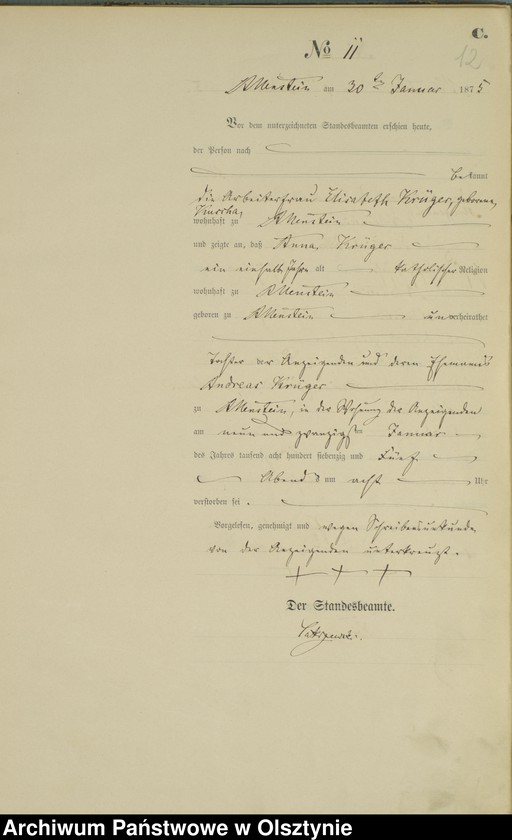 C.
12
No 11
Allenstein am 30ten Januar 1875
Vor dem unterzeichneten Standesbeamten erschien heute,
der Person nach
bekannt
die Arbeiterfrau Elisabeth Krüger, geborene
wohnhaft zu Allenstein
und zeigte an, daß Anna Krüger
ein einhalb Jahre alt katholischer Religion
wohnhaft zu Allenstein
geboren zu Allenstein unverheirathet
Tochter der Anzeigenden und deren Ehemannes
Andreas Krüger
zu Allenstein, in der Wohnung der Anzeigenden
am neun und zwanzigsten Januar
des Jahres tausend acht hundert siebenzig und Fünf
Abends um acht Uhr
verstorben sei.
Vorgelesen, genehmigt und wegen Schreibensunkunde
von der Anzeigenden unterkreuzt.
+ + +
Der Standesbeamte.
Archiwum Państwowe w Olsztynie